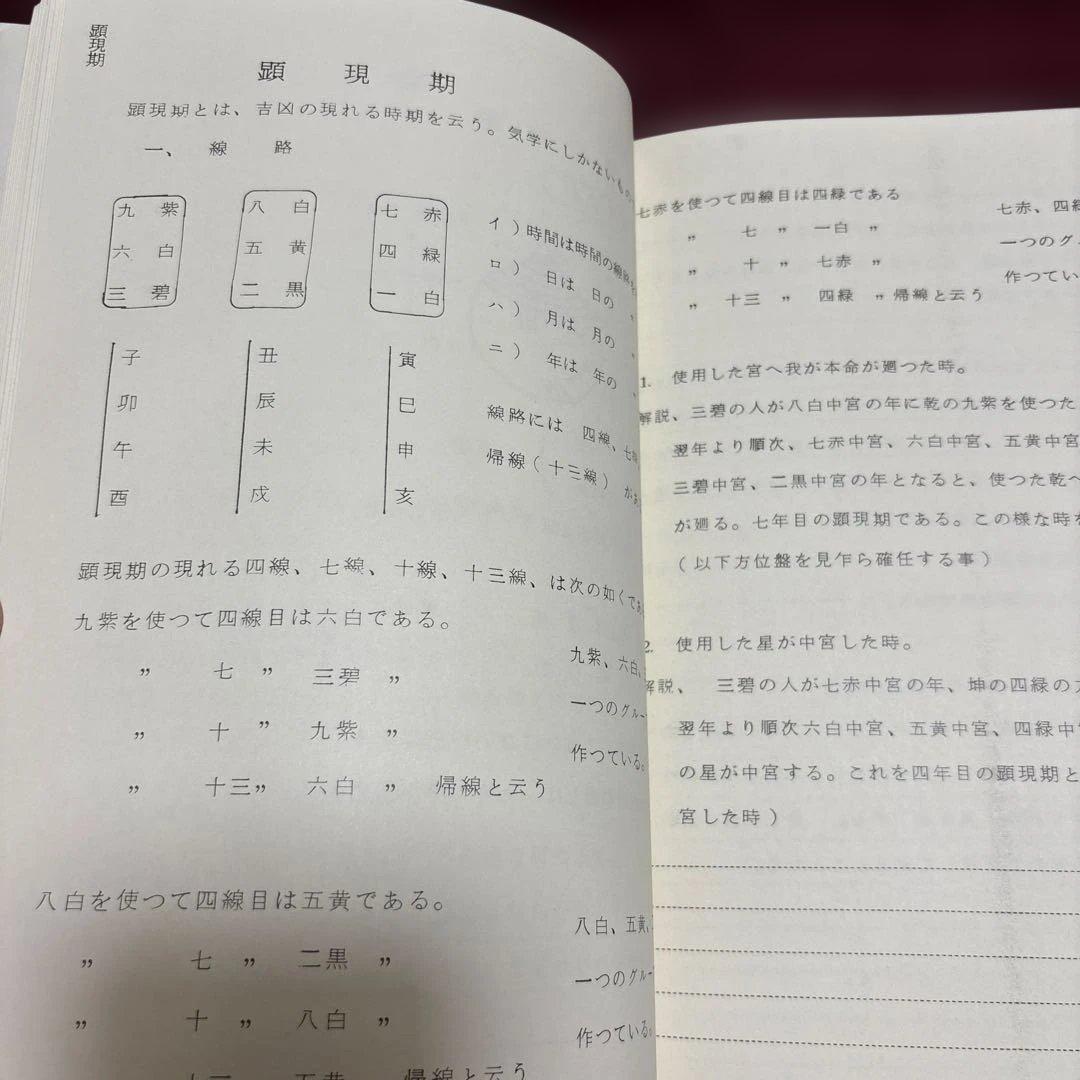 顕現期
顕現期
顕現期とは、吉凶の現れる時期を云う。気学にしかないもの
一、線路
九紫 八白 七赤
六白 五黄 四緑
三碧 二黒 一白
子 丑 寅
卯 辰 巳
午 未 申
酉 戌 亥
イ）時間は時間の線路を
ロ）日は 日の 〃
ハ）月は 月の 〃
ニ）年は 年の 〃
線路には 四線、七線
帰線（十三線）があ
顕現期の現れる四線、七線、十線、十三線、は次の如くであ
九紫を使つて四線目は六白である。
〃 七 〃 三碧 〃
〃 十 〃 九紫 〃
〃 十三〃 六白 〃 帰線と云う
九紫、六白、
一つのグルー
作つている。
八白を使つて四線目は五黄である。
〃 七 〃 二黒 〃
〃 十 〃 八白 〃
十三 五黄 帰線と云う
八白、五黄、
一つのグルー
作つている。
七赤を使つて四線目は四緑である
〃 七 〃 一白 〃
〃 十 〃 七赤 〃
〃 十三 〃 四緑 〃帰線と云う
七赤、四緑
一つのグ
作つてい
1. 使用した宮へ我が本命が廻つた時。
解説、三碧の人が八白中宮の年に乾の九紫を使つた
翌年より順次、七赤中宮、六白中宮、五黄中宮
三碧中宮、二黒中宮の年となると、使つた乾へ
が廻る。七年目の顕現期である。この様な時を
（以下方位盤を見乍ら確任する事）
2. 使用した星が中宮した時。
解説、 三碧の人が七赤中宮の年、坤の四緑の
翌年より順次六白中宮、五黄中宮、四緑中
の星が中宮する。これを四年目の顕現期と
宮した時）